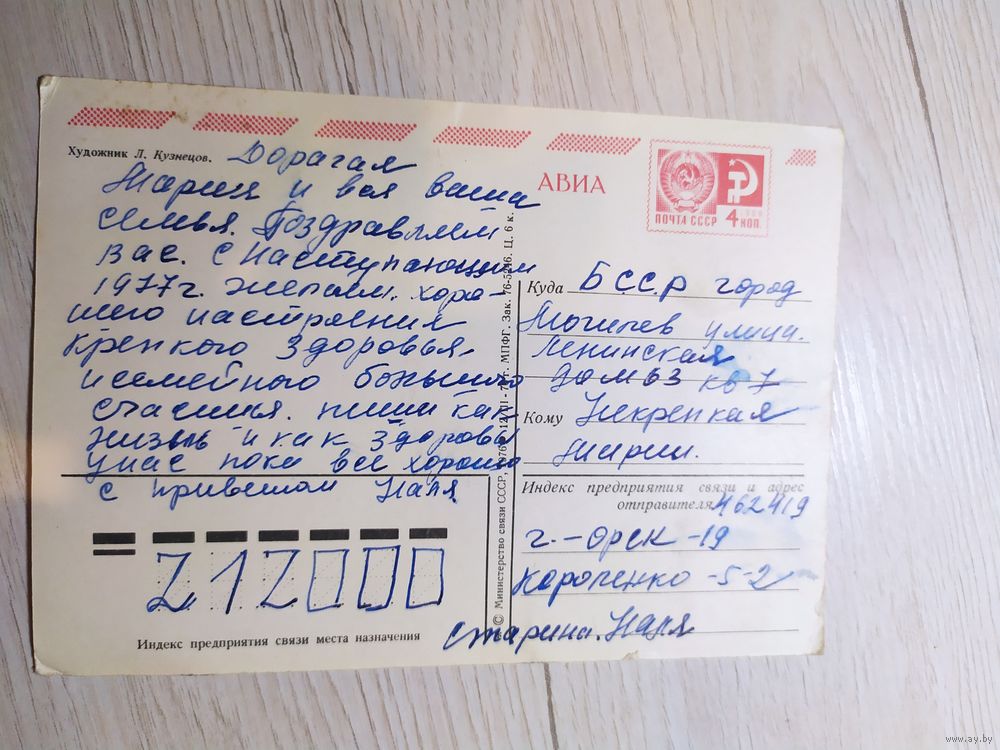 Художник Л. Кузнецов.
Дорагая
Мария и вся ваша
семья. Поздравляем
вас. с наступающим
1977г. желаем. хоро-
шего настроения
крепкого здоровья.
и семейного большого
счастья. пиши как
жизнь и как здоровье
у нас пока все хорошо
с приветом Наля
АВИА
ПОЧТА СССР
4 КОП.
Куда БССР город
Могилев улица.
Ленинская
дом 63 кв 7
Кому Некрепкая
Марии.
Индекс предприятия связи и адрес
отправителя 462419
г.-Орск-19
Короленко-5-2
Старина. Наля
212000
Индекс предприятия связи места назначения
© Министерство связи СССР, 1976. МПФГ. Зак. 76-5246. Ц. 6 к.
www.ay.by